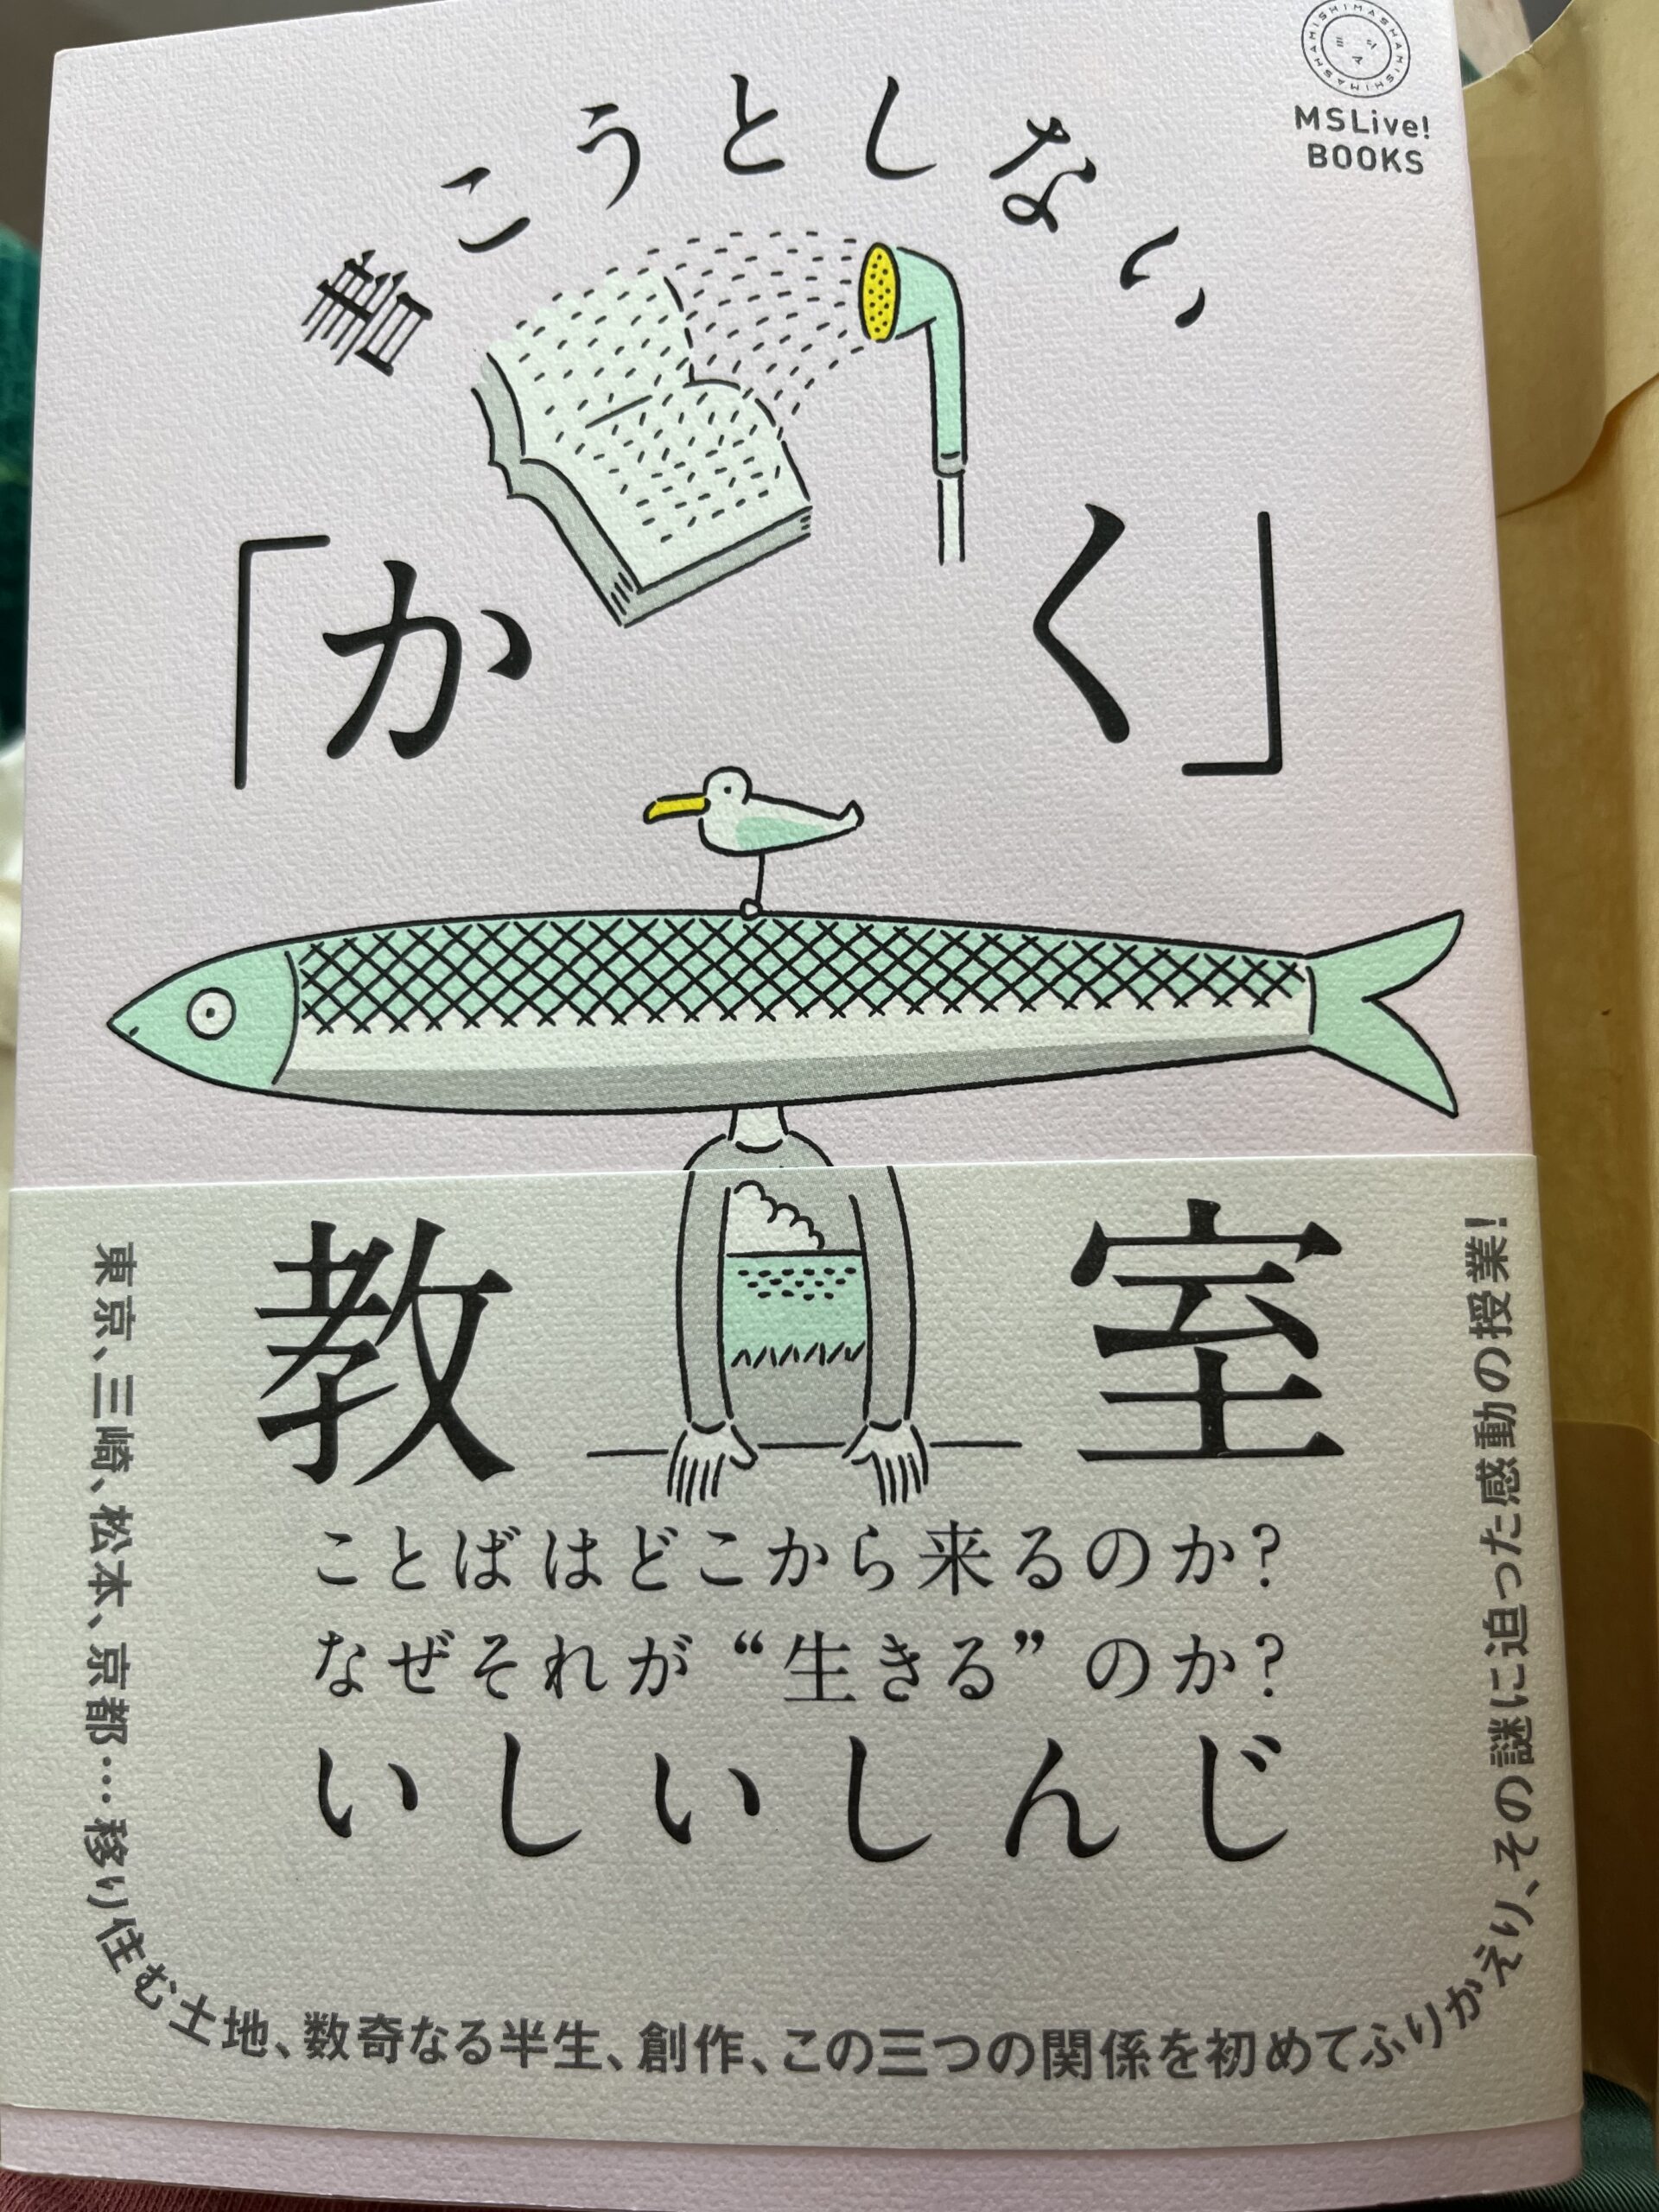 MISHIMASHA MISHIMASHA
ミシマ
MSLive!
BOOKS
書こうとしない
「かく」
教室
ことばはどこから来るのか?
なぜそれが“生きる”のか?
いしいしんじ
東京、三崎、松本、京都…移り住む土地、数奇なる半生、創作、この三つの関係を初めてふりかえり、その謎に迫った感動の授業!